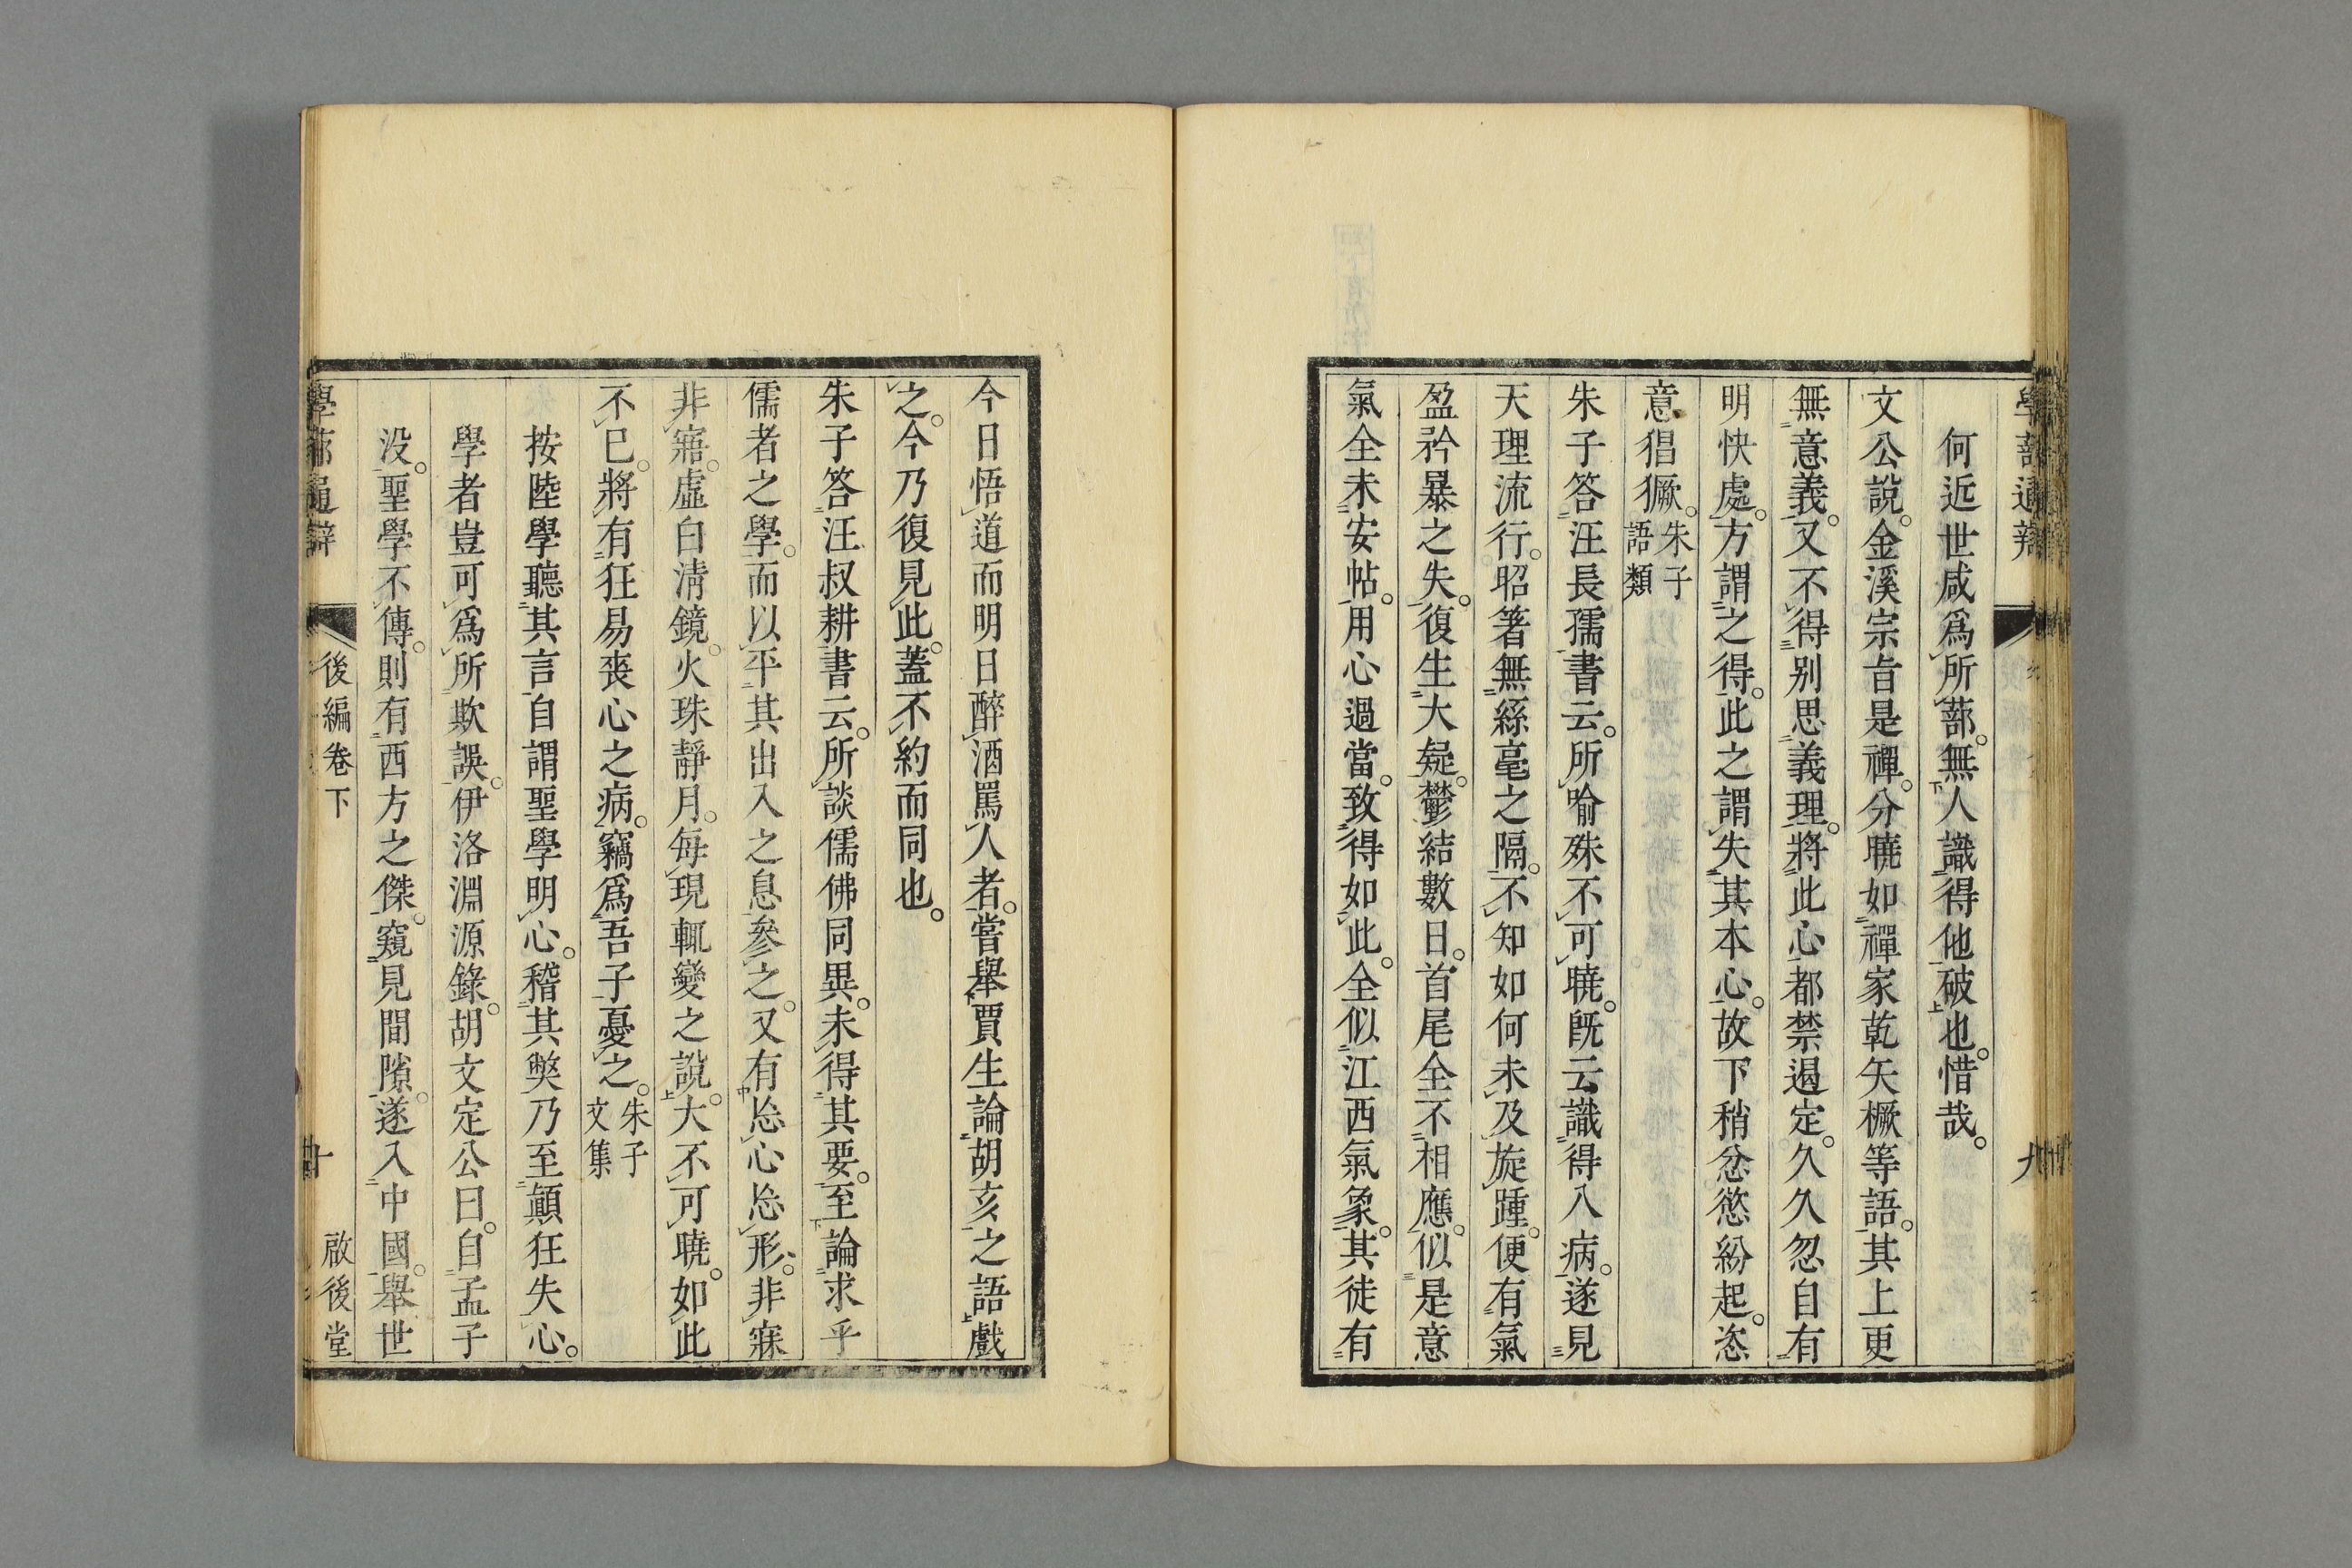 學蔀通辯
九
何近世咸爲所蔀。無人識得他破也。惜哉。
文公說。金溪宗旨是禪。分曉如禪家乾矢橛等語。其上更
無意義。又不得别思義理。將此心都禁遏定。久久忽自有
明快處。方謂之得。此之謂失其本心。故下稍忿慾紛起。恣
意猖獗。朱子語類
朱子答汪長孺書云。所喻殊不可曉。旣云識得入病。遂見
天理流行。昭著無絲毫之隔。不知如何未及旋踵。便有氣
盈矜暴之失。復生大疑。鬱結數日。首尾全不相應。似是意
氣全未安帖。用心過當。致得如此。全似江西氣象。其徒有
今日悟道而明日醉酒罵人者。嘗舉賈生論胡亥之語戲
之。今乃復見此。蓋不約而同也。
朱子答汪叔耕書云。所談儒佛同異。未得其要。至論求乎
儒者之學。而以平其出入之息參之。又有忘心忘形。非寐
非寤。虛白淸鏡。火珠靜月。每現輒變之說。大不可曉。如此
不已。將有狂易喪心之病。竊爲吾子憂之。朱子文集
按陸學聽其言自謂聖學明心。稽其獘乃至顛狂失心。
學者豈可爲所欺誤。伊洛淵源錄。胡文定公曰。自孟子
没。聖學不傳。則有西方之傑。窺見間隙。遂入中國。舉世
學蔀通辯
後編卷下
十
啟後堂